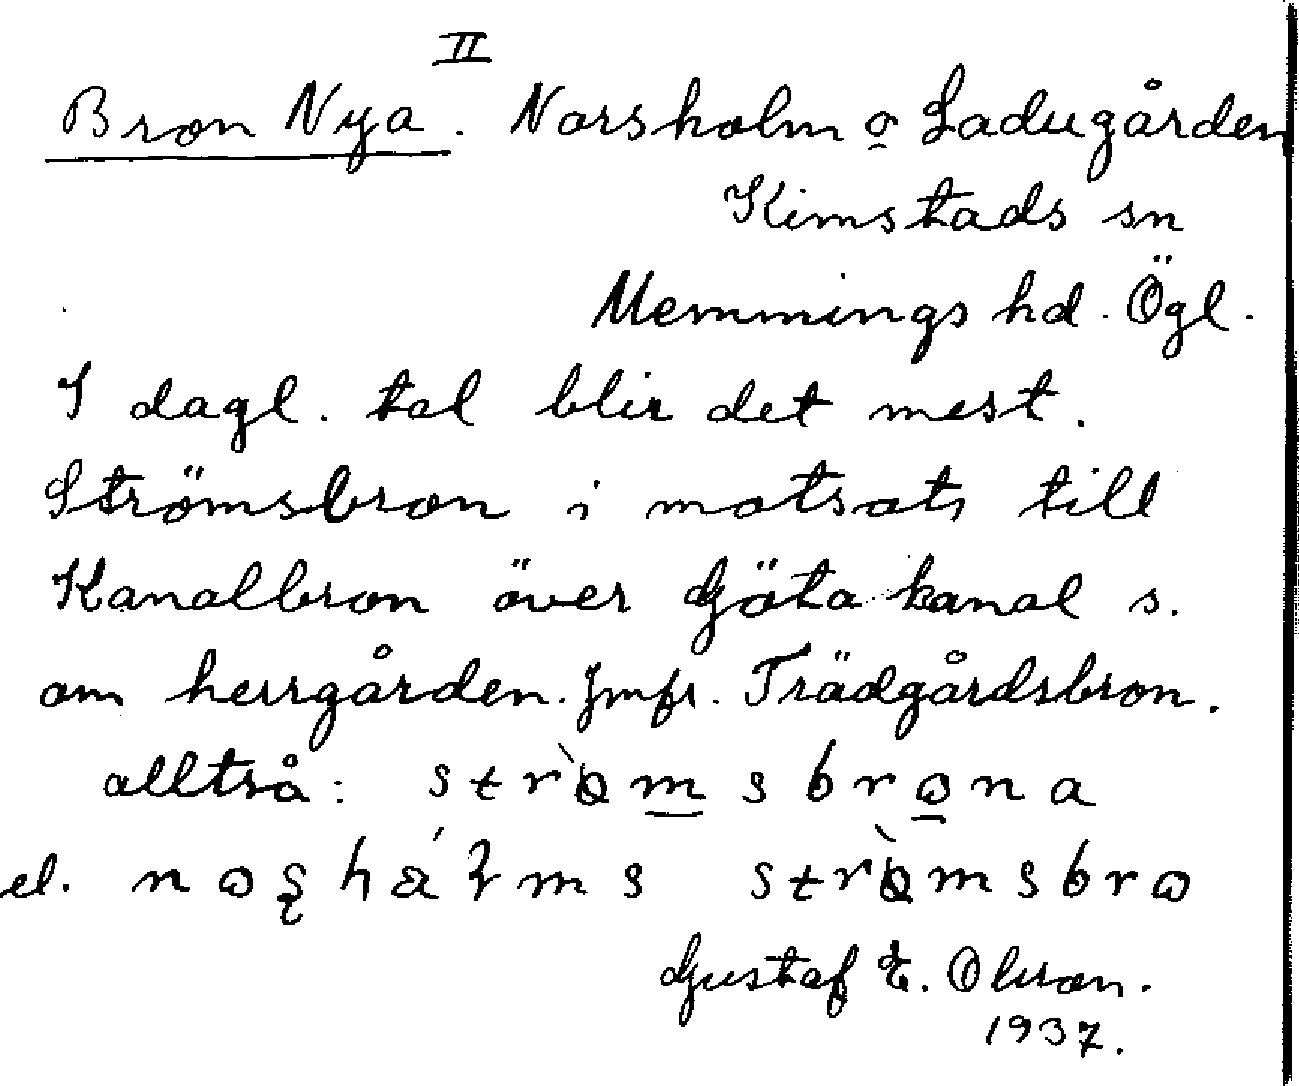 II
Bron Nya. Norsholm o Ladugården
Kimstads sn
Memmings hd. Ögl.
I dagl. tal blir det mest.
Strömsbron i motsats till
Kanalbron över Göta kanal s.
om herrgården. Jmfr. Trädgårdsbron.
alltså:
el.
Gustaf E. Olsson.
1937.